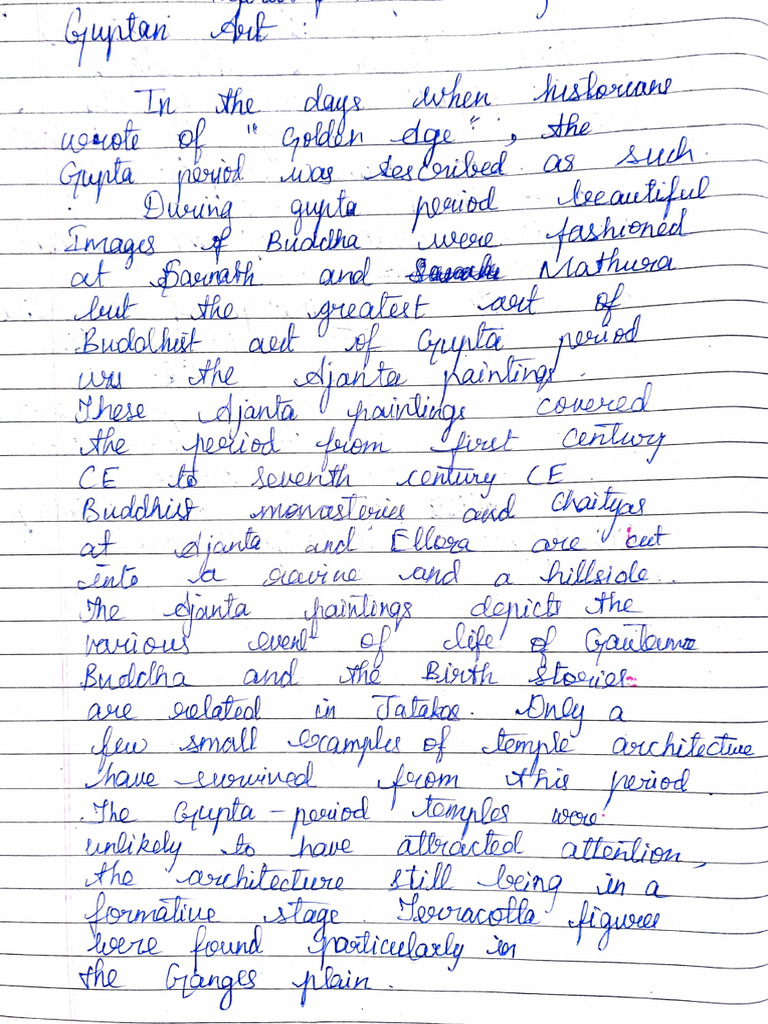 Guptan Art :
In the days when historians
wrote of "Golden Age", the
Gupta period was described as such.
During gupta period beautiful
Images of Buddha were fashioned
at Sarnath and Mathura
but the greatest art of
Buddhist art of Gupta period
was the Ajanta paintings.
These Ajanta paintings covered
the period from first century
CE to seventh century CE
Buddhist monasteries and Chaityas
at Ajanta and Ellora are cut
into a ravine and a hillside.
The Ajanta paintings depicts the
various event of life of Gautama
Buddha and the Birth Stories
are related in Jatakas. Only a
few small examples of temple architecture
have survived from this period.
The Gupta-period temples were
unlikely to have attracted attention,
the architecture still being in a
formative stage. Terracotta figures
were found particularly in
the Ganges plain.